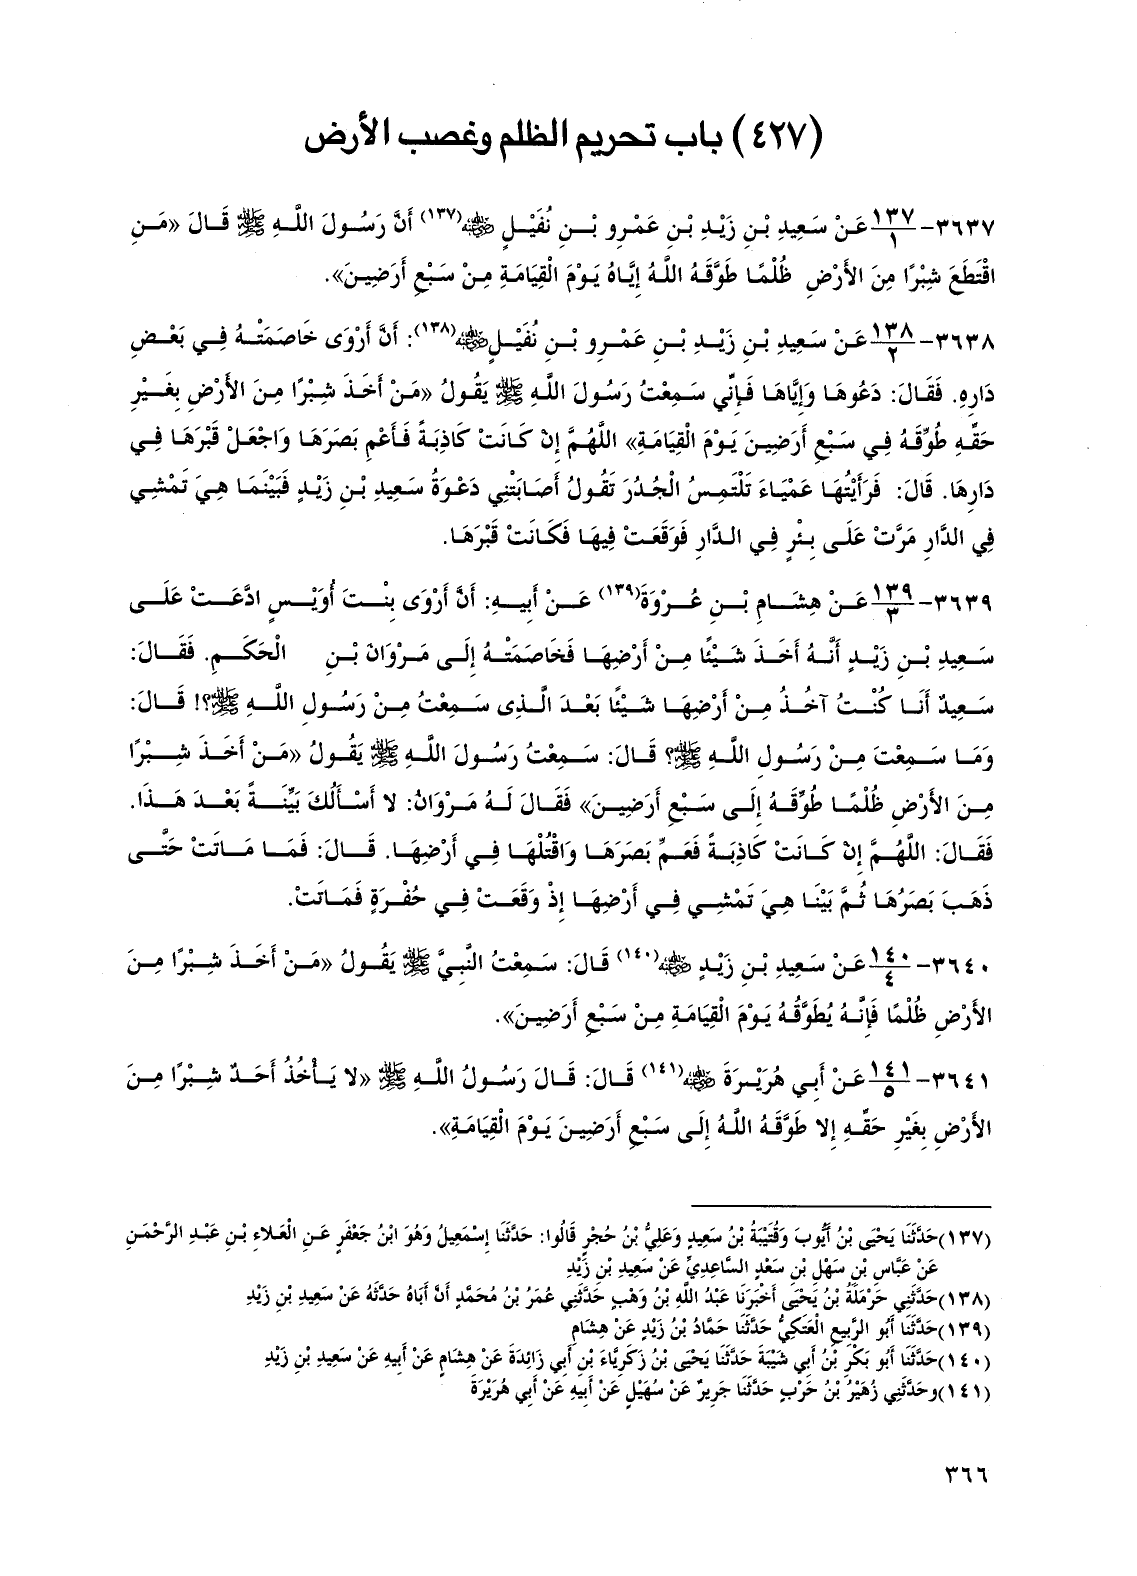 (٤٢٧) باب تحريم الظلم وغصب الأرض
٣٦٣٧- ١٣٧/١ عَنْ سَعِيدِ بْنِ زَيْدِ بْنِ عَمْرِو بْنِ نُفَيْلٍ ﷺ(١٣٧) أَنَّ رَسُولَ اللَّهِ ﷺ قَالَ «مَنِ
اقْتَطَعَ شِبْرًا مِنَ الأَرْضِ ظُلْمًا طَوَّقَهُ اللَّهُ إِيَّاهُ يَوْمَ الْقِيَامَةِ مِنْ سَبْعِ أَرَضِينَ».
٣٦٣٨- ١٣٨/٢ عَنْ سَعِيدِ بْنِ زَيْدِ بْنِ عَمْرِو بْنِ نُفَيْلٍ(١٣٨): أَنَّ أَرْوَى خَاصَمَتْهُ فِي بَعْضِ
دَارِهِ. فَقَالَ: دَعُوهَا وَإِيَّاهَا فَإِنِّي سَمِعْتُ رَسُولَ اللَّهِ ﷺ يَقُولُ «مَنْ أَخَذَ شِبْرًا مِنَ الأَرْضِ بِغَيْرِ
حَقِّهِ طُوِّقَهُ فِي سَبْعِ أَرَضِينَ يَوْمَ الْقِيَامَةِ» اللَّهُمَّ إِنْ كَانَتْ كَاذِبَةً فَأَعْمِ بَصَرَهَا وَاجْعَلْ قَبْرَهَا فِي
دَارِهَا. قَالَ: فَرَأَيْتُهَا عَمْيَاءَ تَلْتَمِسُ الْجُدُرَ تَقُولُ أَصَابَتْنِي دَعْوَةُ سَعِيدِ بْنِ زَيْدٍ فَبَيْنَمَا هِيَ تَمْشِي
فِي الدَّارِ مَرَّتْ عَلَى بِئْرٍ فِي الدَّارِ فَوَقَعَتْ فِيهَا فَكَانَتْ قَبْرَهَا.
٣٦٣٩- ١٣٩/٣ عَنْ هِشَامِ بْنِ عُرْوَةَ(١٣٩) عَنْ أَبِيهِ: أَنَّ أَرْوَى بِنْتَ أُوَيْسٍ ادَّعَتْ عَلَى
سَعِيدِ بْنِ زَيْدٍ أَنَّهُ أَخَذَ شَيْئًا مِنْ أَرْضِهَا فَخَاصَمَتْهُ إِلَى مَرْوَانَ بْنِ الْحَكَمِ. فَقَالَ:
سَعِيدٌ أَنَا كُنْتُ آخُذُ مِنْ أَرْضِهَا شَيْئًا بَعْدَ الَّذِى سَمِعْتُ مِنْ رَسُولِ اللَّهِ ﷺ؟! قَالَ:
وَمَا سَمِعْتَ مِنْ رَسُولِ اللَّهِ ﷺ؟ قَالَ: سَمِعْتُ رَسُولَ اللَّهِ ﷺ يَقُولُ «مَنْ أَخَذَ شِبْرًا
مِنَ الأَرْضِ ظُلْمًا طُوِّقَهُ إِلَى سَبْعِ أَرَضِينَ» فَقَالَ لَهُ مَرْوَانُ: لا أَسْأَلُكَ بَيِّنَةً بَعْدَ هَذَا.
فَقَالَ: اللَّهُمَّ إِنْ كَانَتْ كَاذِبَةً فَعَمِّ بَصَرَهَا وَاقْتُلْهَا فِي أَرْضِهَا. قَالَ: فَمَا مَاتَتْ حَتَّى
ذَهَبَ بَصَرُهَا ثُمَّ بَيْنَا هِيَ تَمْشِي فِي أَرْضِهَا إِذْ وَقَعَتْ فِي حُفْرَةٍ فَمَاتَتْ.
٣٦٤٠- ١٤٠/٤ عَنْ سَعِيدِ بْنِ زَيْدٍ(١٤٠) قَالَ: سَمِعْتُ النَّبِيَّ ﷺ يَقُولُ «مَنْ أَخَذَ شِبْرًا مِنَ
الأَرْضِ ظُلْمًا فَإِنَّهُ يُطَوَّقُهُ يَوْمَ الْقِيَامَةِ مِنْ سَبْعِ أَرَضِينَ».
٣٦٤١- ١٤١/٥ عَنْ أَبِي هُرَيْرَةَ(١٤١) قَالَ: قَالَ رَسُولُ اللَّهِ ﷺ «لا يَأْخُذُ أَحَدٌ شِبْرًا مِنَ
الأَرْضِ بِغَيْرِ حَقِّهِ إِلا طَوَّقَهُ اللَّهُ إِلَى سَبْعِ أَرَضِينَ يَوْمَ الْقِيَامَةِ».
(١٣٧)حَدَّثَنَا يَحْيَى بْنُ أَيُّوبَ وَقُتَيْبَةُ بْنُ سَعِيدٍ وَعَلِيُّ بْنُ حُجْرٍ قَالُوا: حَدَّثَنَا إِسْمَعِيلُ وَهُوَ ابْنُ جَعْفَرٍ عَنِ الْعَلاءِ بْنِ عَبْدِ الرَّحْمَنِ
عَنْ عَبَّاسِ بْنِ سَهْلِ بْنِ سَعْدٍ السَّاعِدِيِّ عَنْ سَعِيدِ بْنِ زَيْدٍ
(١٣٨)حَدَّثَنِي حَرْمَلَةُ بْنُ يَحْيَى أَخْبَرَنَا عَبْدُ اللَّهِ بْنُ وَهْبٍ حَدَّثَنِي عُمَرُ بْنُ مُحَمَّدٍ أَنَّ أَبَاهُ حَدَّثَهُ عَنْ سَعِيدِ بْنِ زَيْدٍ
(١٣٩)حَدَّثَنَا أَبُو الرَّبِيعِ الْعَتَكِيُّ حَدَّثَنَا حَمَّادُ بْنُ زَيْدٍ عَنْ هِشَامٍ
(١٤٠)حَدَّثَنَا أَبُو بَكْرِ بْنُ أَبِي شَيْبَةَ حَدَّثَنَا يَحْيَى بْنُ زَكَرِيَّاءَ بْنِ أَبِي زَائِدَةَ عَنْ هِشَامٍ عَنْ أَبِيهِ عَنْ سَعِيدِ بْنِ زَيْدٍ
(١٤١)وحَدَّثَنِي زُهَيْرُ بْنُ حَرْبٍ حَدَّثَنَا جَرِيرٌ عَنْ سُهَيْلٍ عَنْ أَبِيهِ عَنْ أَبِي هُرَيْرَةَ
٣٦٦